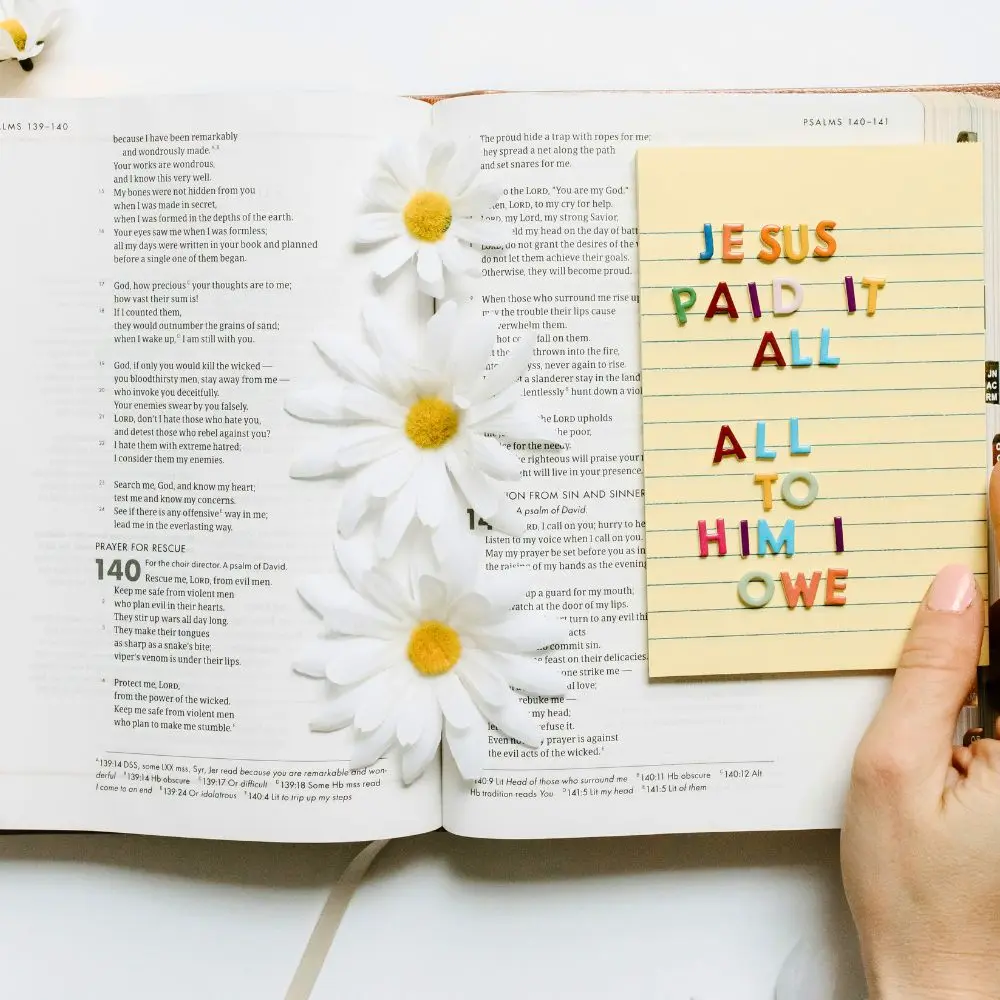 PSALMS 140–141
because I have been remarkably
and wondrously made.
Your works are wondrous,
and I know this very well.
15 My bones were not hidden from you
when I was made in secret,
when I was formed in the depths of the earth.
16 Your eyes saw me when I was formless;
all my days were written in your book and planned
before a single one of them began.
17 God, how precious your thoughts are to me;
how vast their sum is!
18 If I counted them,
they would outnumber the grains of sand;
when I wake up, I am still with you.
19 God, if only you would kill the wicked —
you bloodthirsty men, stay away from me —
20 who invoke you deceitfully.
Your enemies swear by you falsely.
21 LORD, don't I hate those who hate you,
and detest those who rebel against you?
22 I hate them with extreme hatred;
I consider them my enemies.
23 Search me, God, and know my heart;
test me and know my concerns.
24 See if there is any offensive way in me;
lead me in the everlasting way.
PRAYER FOR RESCUE
140 For the choir director. A psalm of David.
Rescue me, LORD, from evil men.
Keep me safe from violent men
2 who plan evil in their hearts.
They stir up wars all day long.
3 They make their tongues
as sharp as a snake's bite;
viper's venom is under their lips.
Protect me, LORD,
from the power of the wicked.
Keep me safe from violent men
who plan to make me stumble.
139:14 DSS, some LXX mss, Syr, Jer read because you are remarkable and won-
derful 139:14 Hb obscure 139:17 Or difficult 139:18 Some Hb mss read
I come to an end 139:24 Or idolatrous 140:4 Lit to trip up my steps
The proud hide a trap with ropes for me;
they spread a net along the path
and set snares for me.
to the LORD, "You are my God."
LORD, to my cry for help.
LORD, my Lord, my strong Savior,
my head on the day of
LORD, do not grant the desires of the
do not let them achieve their goals.
Otherwise, they will become proud.
9 When those who surround me rise up
may the trouble their lips cause
overwhelm them.
hot fall on them.
thrown into the fire,
never again to rise.
a slanderer stay in the land
hunt down a
the LORD upholds
the poor,
for the needy.
righteous will praise your
will live in your presence.
FROM SIN AND
A psalm of David.
LORD, I call on you; hurry to
Listen to my voice when I call on you.
May my prayer be set before you as
the raising of my hands as the evening
up a guard for my mouth;
watch at the door of my lips.
turn to any evil
acts
commit sin.
feast on their delicacies.
one strike me —
love;
rebuke me —
my head;
refuse it.
Even prayer is against
the evil acts of the wicked.
140:9 Lit Head of those who surround me 140:11 Hb obscure 140:12 Alt
Hb tradition reads You 141:5 Lit my head 141:5 Lit of them
JESUS
PAID IT
ALL
ALL
TO
HIM I
OWE
JN
AC
RM